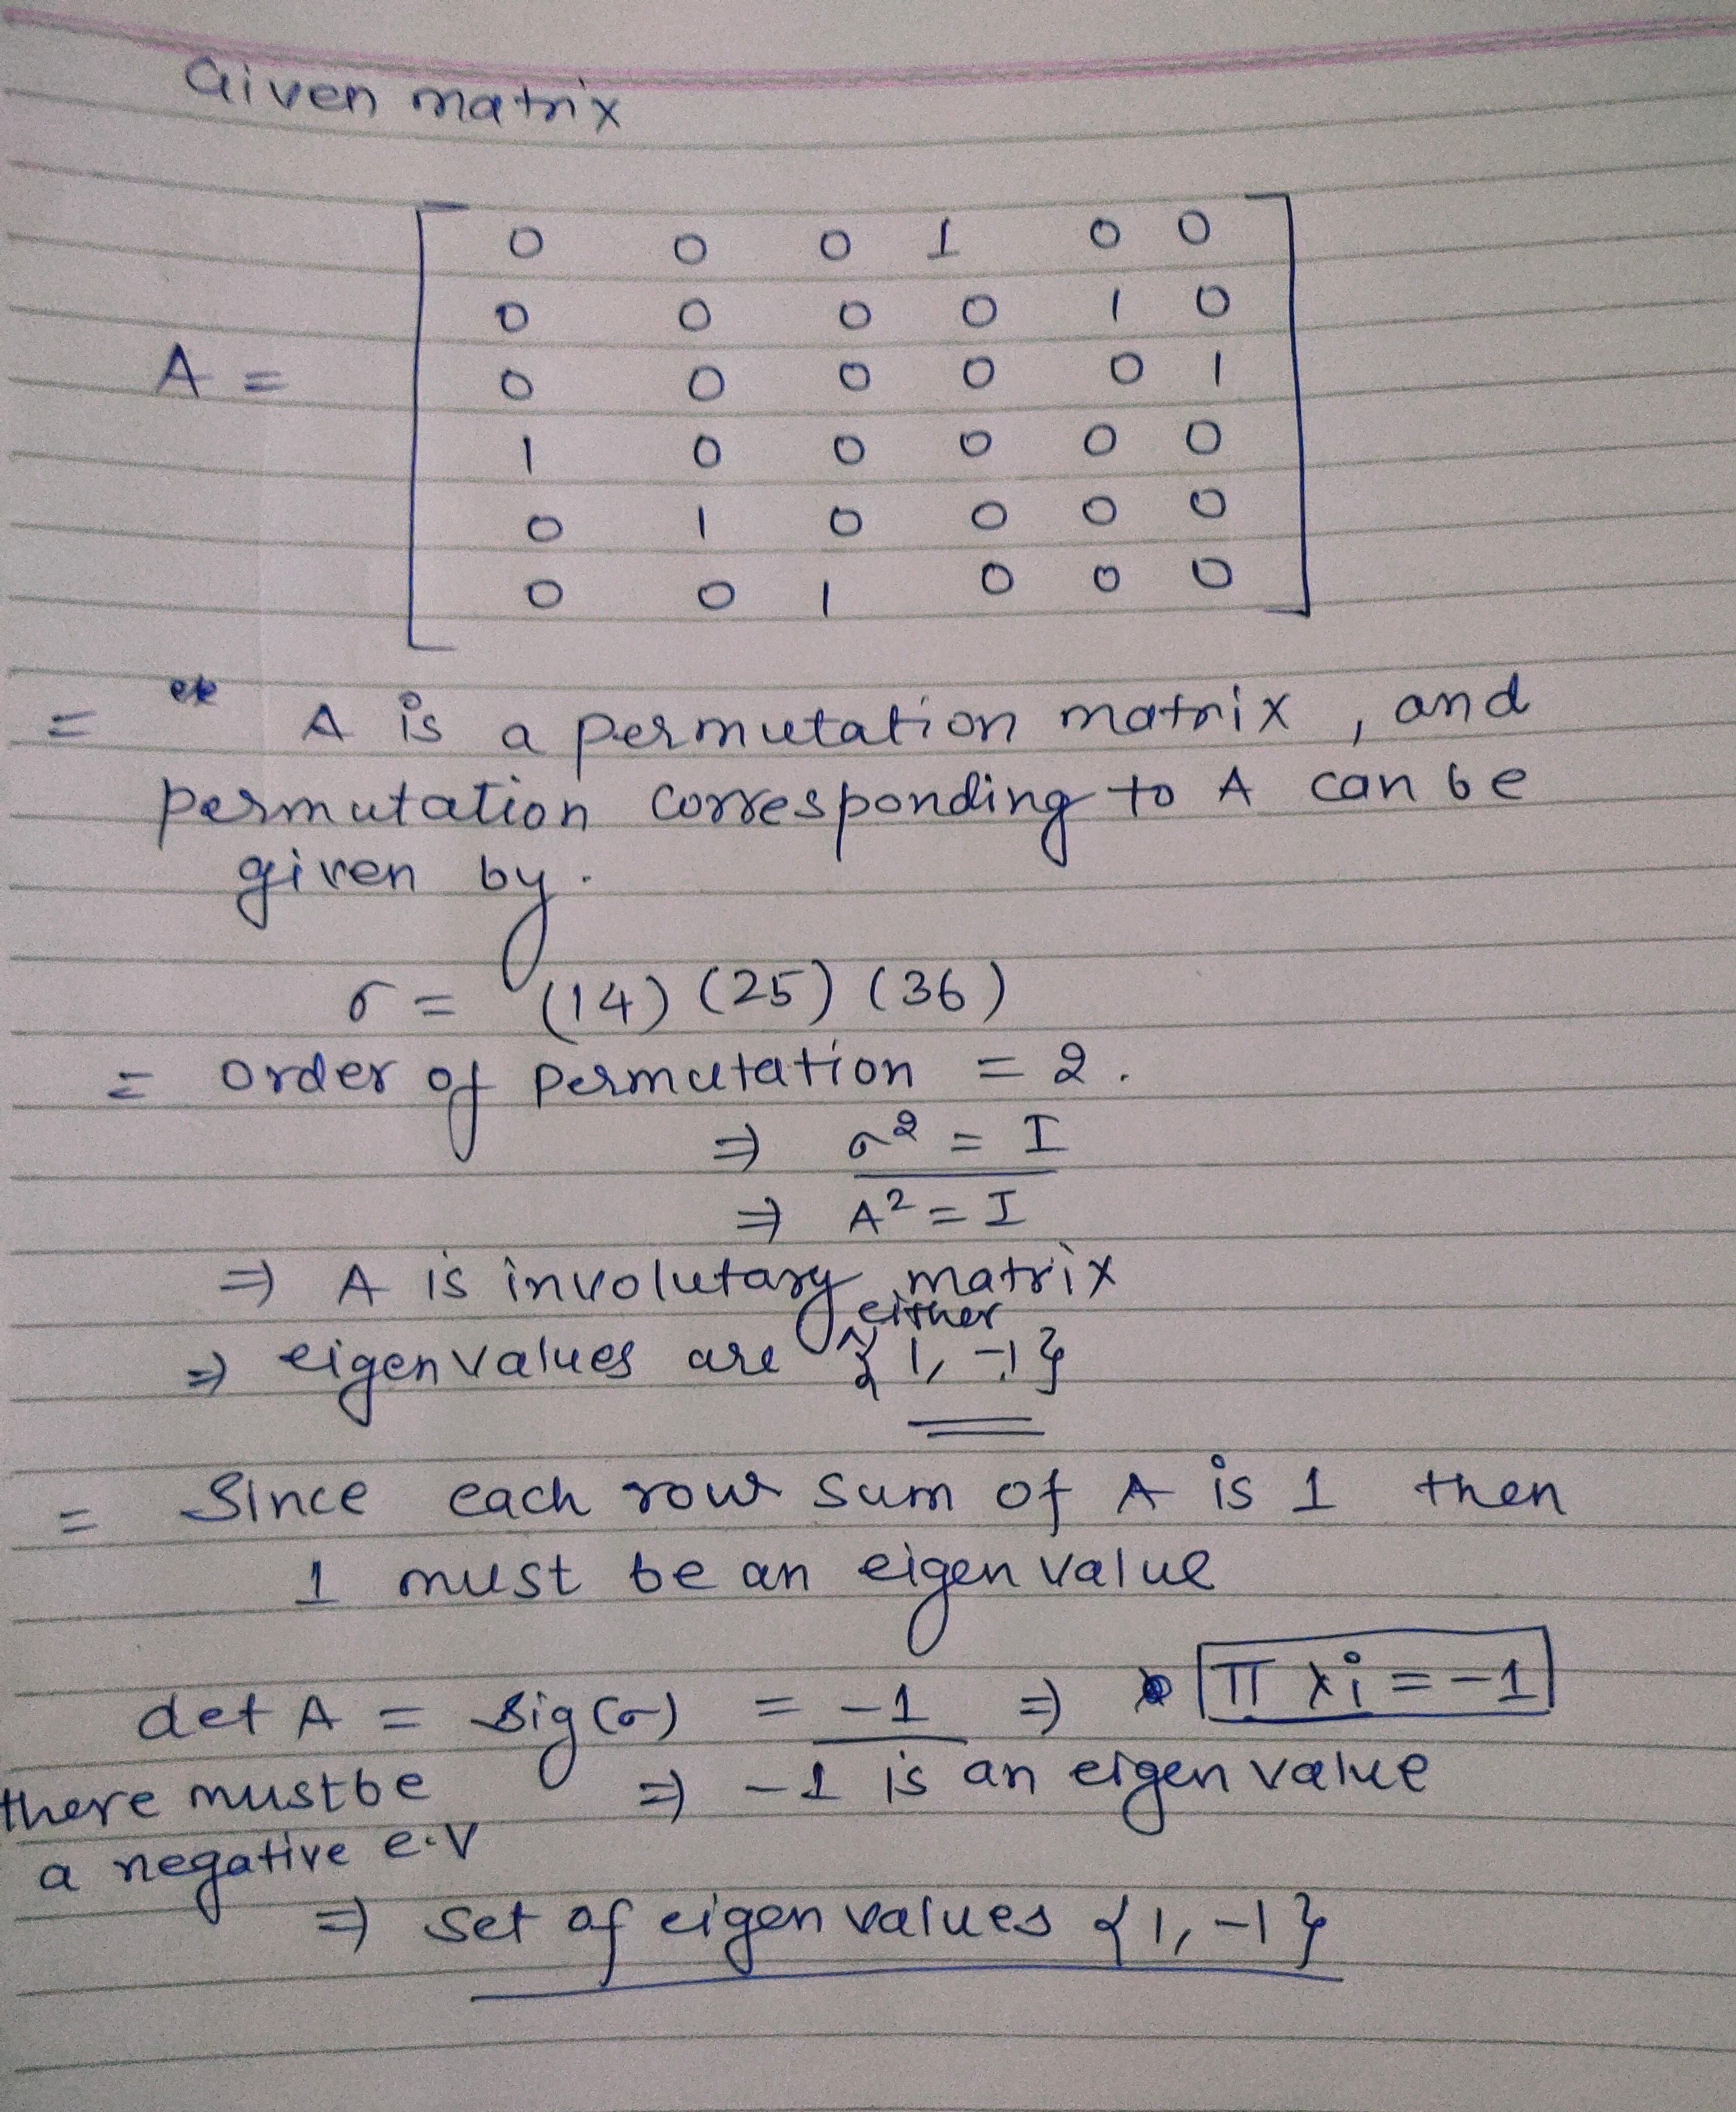 Given matrix
0 0 0 1 0 0
0 0 0 0 1 0
A =
0 0 0 0 0 1
1 0 0 0 0 0
0 1 0 0 0 0
0 0 1 0 0 0
= A is a permutation matrix , and
permutation corresponding to A can be
given by.
σ = (14) (25) (36)
= order of permutation = 2.
⇒ σ² = I
⇒ A² = I
⇒ A is involutary matrix
either
⇒ eigenvalues are {1, -1}
= Since each row sum of A is 1 then
1 must be an eigen value
det A = sig(σ) = -1 ⇒ π λi = -1
there must be ⇒ -1 is an eigen value
a negative e.v
⇒ set of eigen values {1, -1}